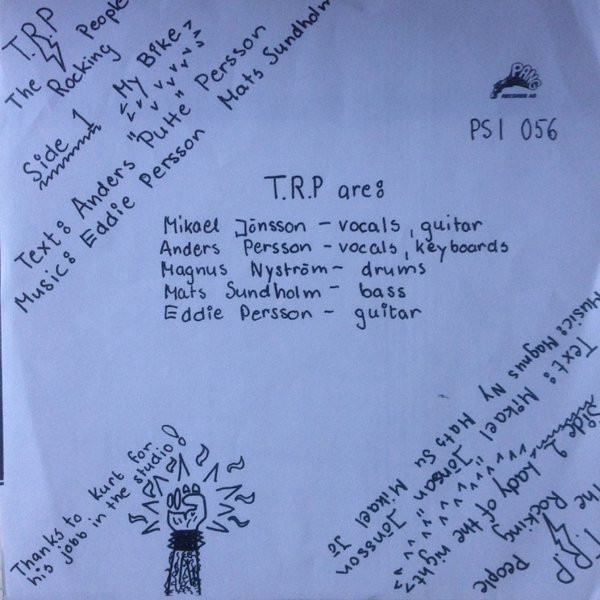 T.R.P
The Rocking People
Side 1 My Bike
Text: Anders "Putte" Persson
Music: Eddie Persson Mats Sundholm
PANG
RECORDS AB
PSI 056
T.R.P are:
Mikael Jönsson - vocals, guitar
Anders Persson - vocals, keyboards
Magnus Nyström - drums
Mats Sundholm - bass
Eddie Persson - guitar
Thanks to Kurt for
his jobb in the studio!
T.R.P
The Rocking People
Side 2 Lady of the night
Text: Mikael Jönsson
Music: Magnus Ny Mats Su Mikael Jö